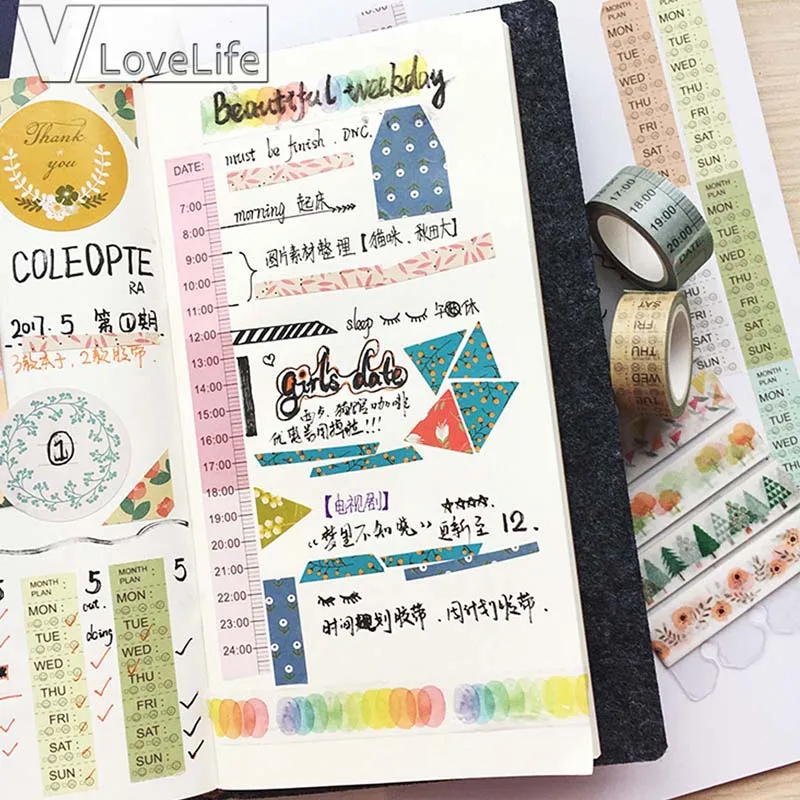 V LoveLife
Thank
you
COLEOPTE
RA
2017.5 第①期
1
5
5
5
out.
doing
MONTH
PLAN
MON:
TUE
WED
THU
FRI
SAT:
SUN:
MONTH
PLAN
MON:
TUE
WED
THU
FRI
SAT:
SUN:
Beautiful weekday
must be finish. DNC.
DATE:
7:00
8:00
9:00
10:00
11:00
12:00
13:00
14:00
15:00
16:00
17:00
18:00
19:00
20:00
21:00
22:00
23:00
24:00
morning 起床
图片素材整理【猫咪、秋田犬】
sleep 午休
girls date
西点、猫馆咖啡
【电视剧】
“梦里不知晓” 更新至 12.
时间规划胶带、周计划胶带.
MONTH
PLAN
MON:
TUE:
WED:
THU:
FRI:
SAT:
SUN:
MON:
TUE:
WED:
THU:
FRI:
SAT:
SUN:
MONTH
PLAN
MON:
TUE:
WED:
THU:
FRI:
SAT:
SUN:
MONTH
PLAN
MON:
TUE:
WED:
17:00
18:00
19:00
20:00
DATE:
SAT
FRI
THU
WED